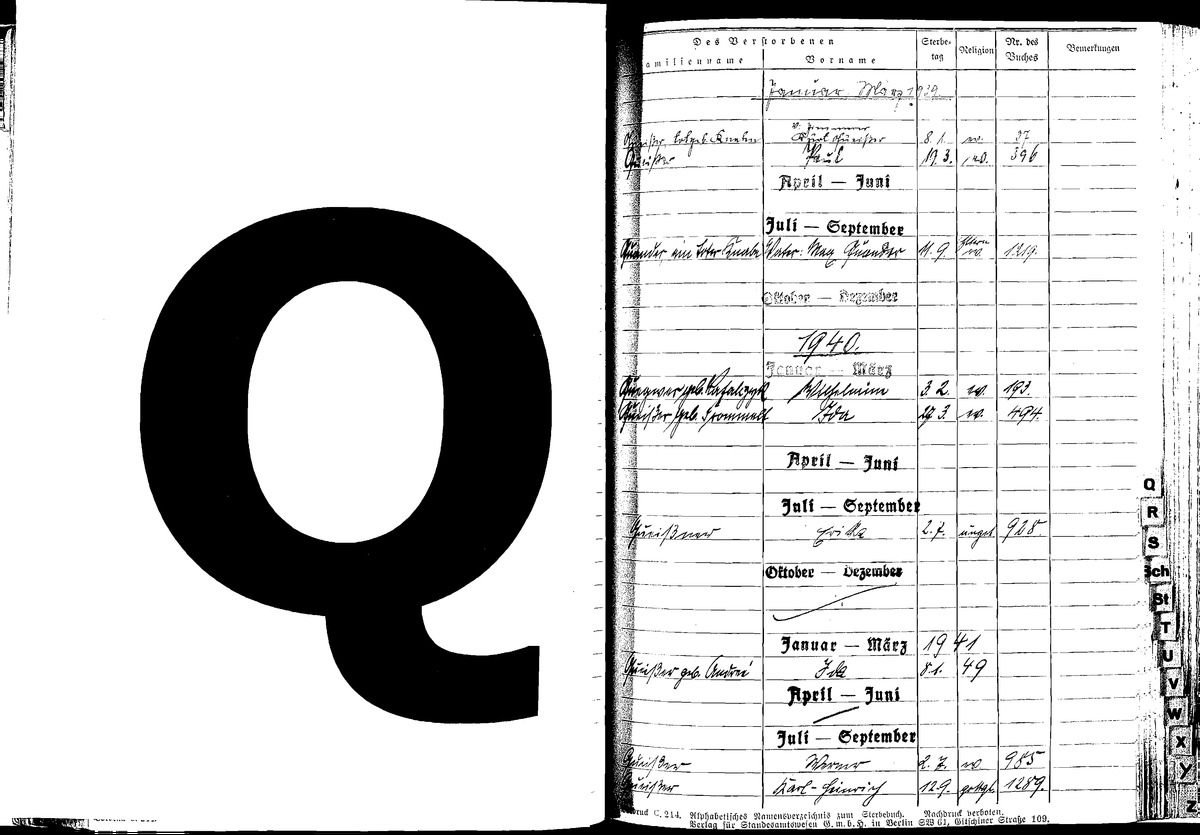 Q
Des Verstorbenen
Familienname Vorname Sterbe-tag Religion Nr. des Buches Bemerkungen
Januar März 1939.
Karl Queißer 8.1. ev. 37
Queißer Paul 19.3. ev. 396
April — Juni
Juli — September
Quander, ein toter Knabe Vater: Max Quander 11.9. Eltern ev. 1219.
Oktober — Dezember
1940.
Januar — März
geb. Wilhelmine 3.2. ev. 193.
Queißer, geb. Frommelt Ida 29.3. ev. 494.
April — Juni
Juli — September
Queißner Erika 2.7. unget. 928.
Oktober — Dezember
Januar — März 1941
Queißer geb. André Ida 8.1. 49
April — Juni
Juli — September
Queißer Werner 2.7. ev. 985
Queißer Karl-Heinrich 12.9. gottgl. 1289.
C. 214. Alphabetisches Namensverzeichnis zum Sterbebuch. Nachdruck verboten.
Verlag für Standesamtswesen G.m.b.H. in Berlin SW 61, Gitschiner Straße 109.
Q
R
S
Sch
St
T
U
V
W
X
Y
Z